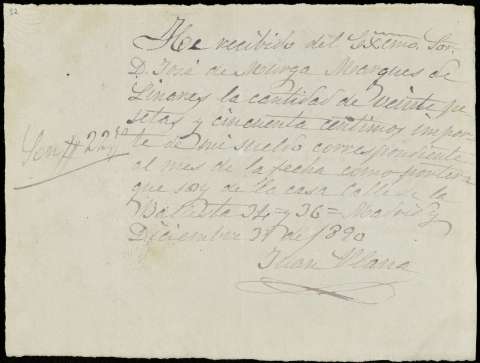 32
He recibido del Exmo. Sor.
D. José de Murga Marques de
Linares la cantidad de veinte pe
setas y cincuenta centimos impor-
te de mi sueldo correspondiente
al mes de la fecha como portera
que soy de la casa Calle de la
34 y 36 = Madrid y
Diciembre 31 de 1890
Son
Juan